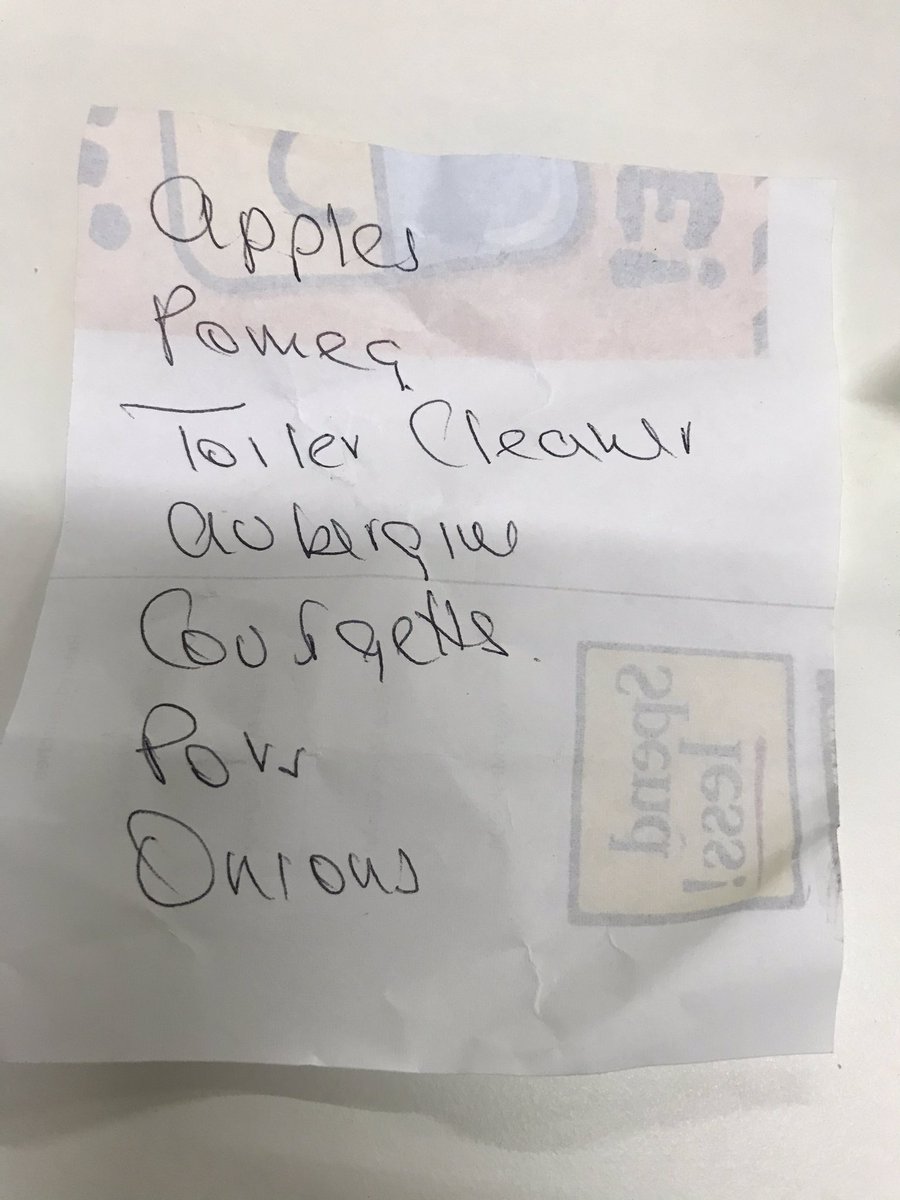 Apples
Pomeg
Toilet Cleaner
Aubergine
Courgette
Onions
Spend
less!